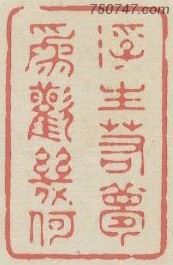 750747.com
浮生若夢
為歡幾何